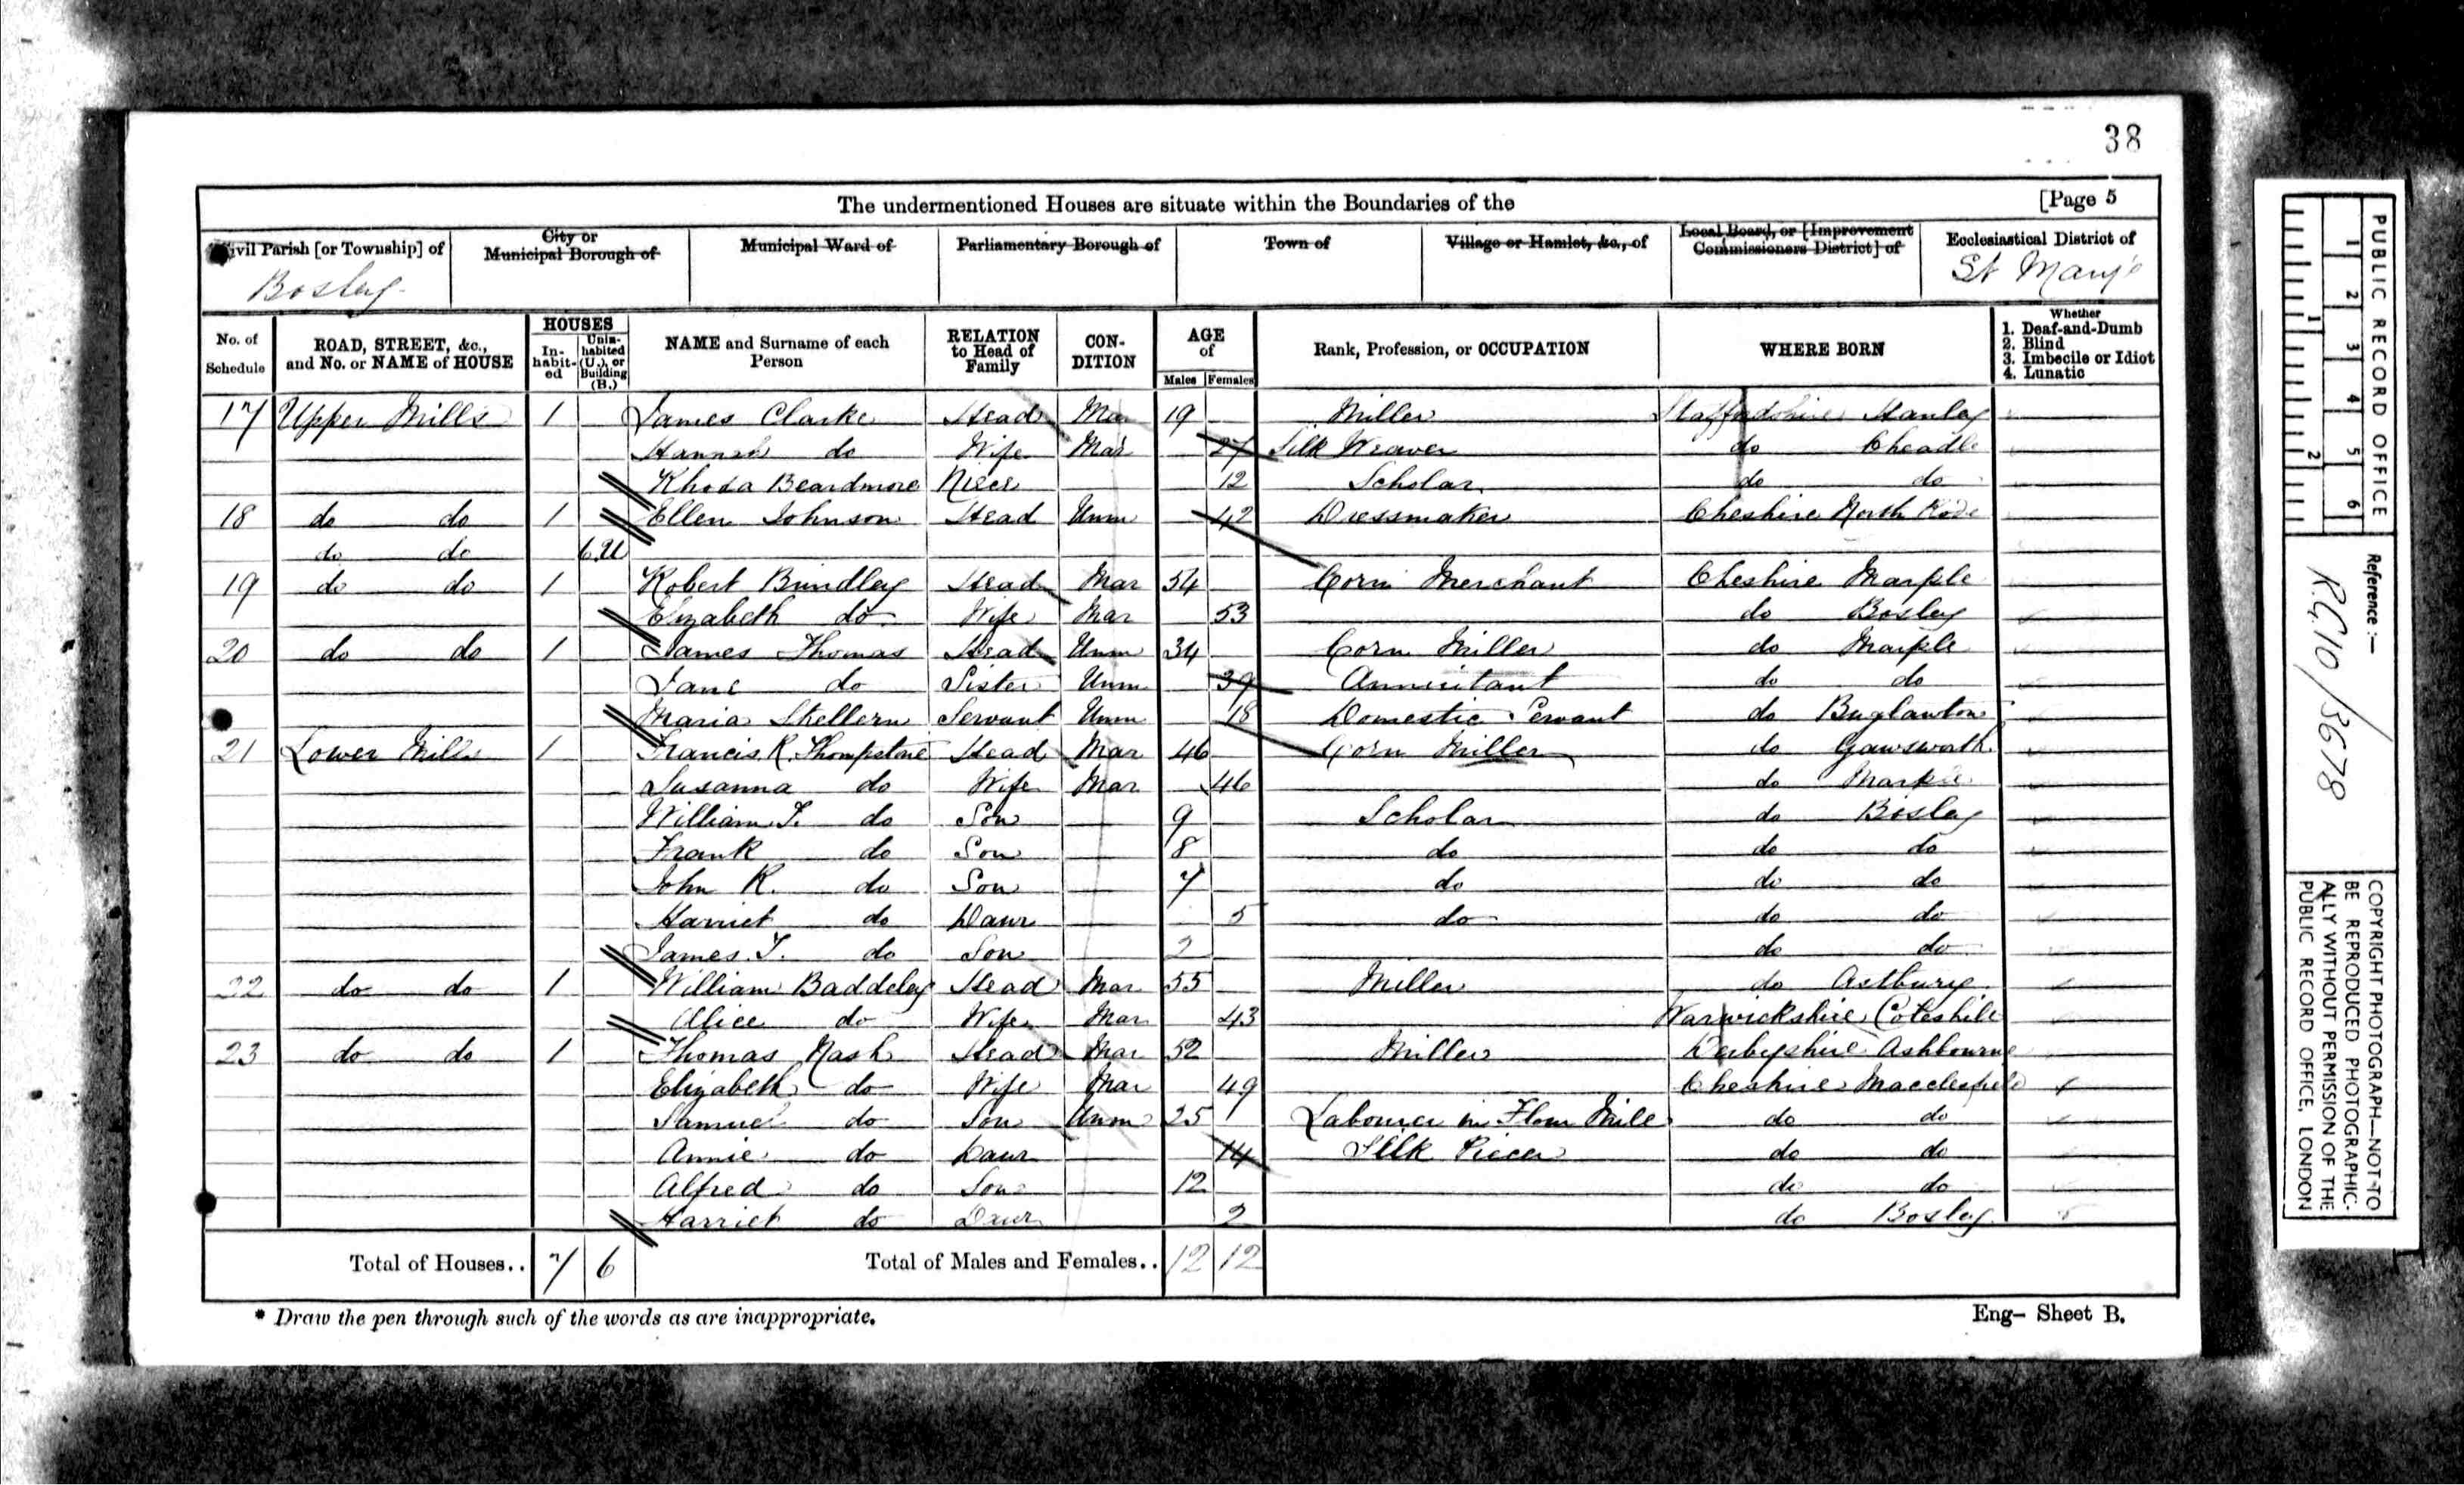 38
The undermentioned Houses are situate within the Boundaries of the [Page 5
Civil Parish [or Township] of City or Municipal Borough of Municipal Ward of Parliamentary Borough of Town of Village or Hamlet, &c., of Local Board, or [Improvement Commissioners District] of Ecclesiastical District of
Bosley St Mary's
No. of Schedule ROAD, STREET, &c., and No. or NAME of HOUSE HOUSES Inhabited Uninhabited (U.), or Building (B.) NAME and Surname of each Person RELATION to Head of Family CONDITION AGE of Males Females Rank, Profession, or OCCUPATION WHERE BORN Whether 1. Deaf-and-Dumb 2. Blind 3. Imbecile or Idiot 4. Lunatic
17 Upper Mills 1 James Clarke Head Mar 19 Miller Staffordshire Stanley
Hannah do Wife Mar 27 Silk Weaver do Cheadle
Rhoda Beardmore Niece 12 Scholar do do
18 do do 1 Ellen Johnson Head Unm 42 Dressmaker Cheshire North Rode
do do 6 U
19 do do 1 Robert Brindley Head Mar 54 Corn Merchant Cheshire Marple
Elizabeth do Wife Mar 53 do Bosley
20 do do 1 James Thomas Head Unm 34 Corn Miller do Marple
Jane do Sister Unm 39 Annuitant do do
Maria Skellern Servant Unm 18 Domestic Servant do Buglawton
21 Lower Mills 1 Francis R. Thompstone Head Mar 46 Corn Miller do Gawsworth
Susanna do Wife Mar 46 do Marple
William T. do Son 9 Scholar do Bosley
Frank do Son 8 do do do
John R. do Son 7 do do do
Harriet do Daur 5 do do do
James T. do Son 2 do do
22 do do 1 William Baddeley Head Mar 55 Miller do Astbury
Alice do Wife Mar 43 Warwickshire Coleshill
23 do do 1 Thomas Nash Head Mar 52 Miller Derbyshire Ashbourne
Elizabeth do Wife Mar 49 Cheshire Macclesfield
Samuel do Son Unm 25 Labourer in Flour Mill do do
Annie do Daur 14 Silk Piecer do do
Alfred do Son 12 do do
Harriet do Daur 2 do Bosley
Total of Houses.. 7 6 Total of Males and Females.. 12 12
* Draw the pen through such of the words as are inappropriate.
Eng- Sheet B.
PUBLIC RECORD OFFICE
1 2 3 4 5 6
1 2
Reference :-
R.G.10/3678
COPYRIGHT PHOTOGRAPH—NOT TO
BE REPRODUCED PHOTOGRAPHIC-
ALLY WITHOUT PERMISSION OF THE
PUBLIC RECORD OFFICE, LONDON